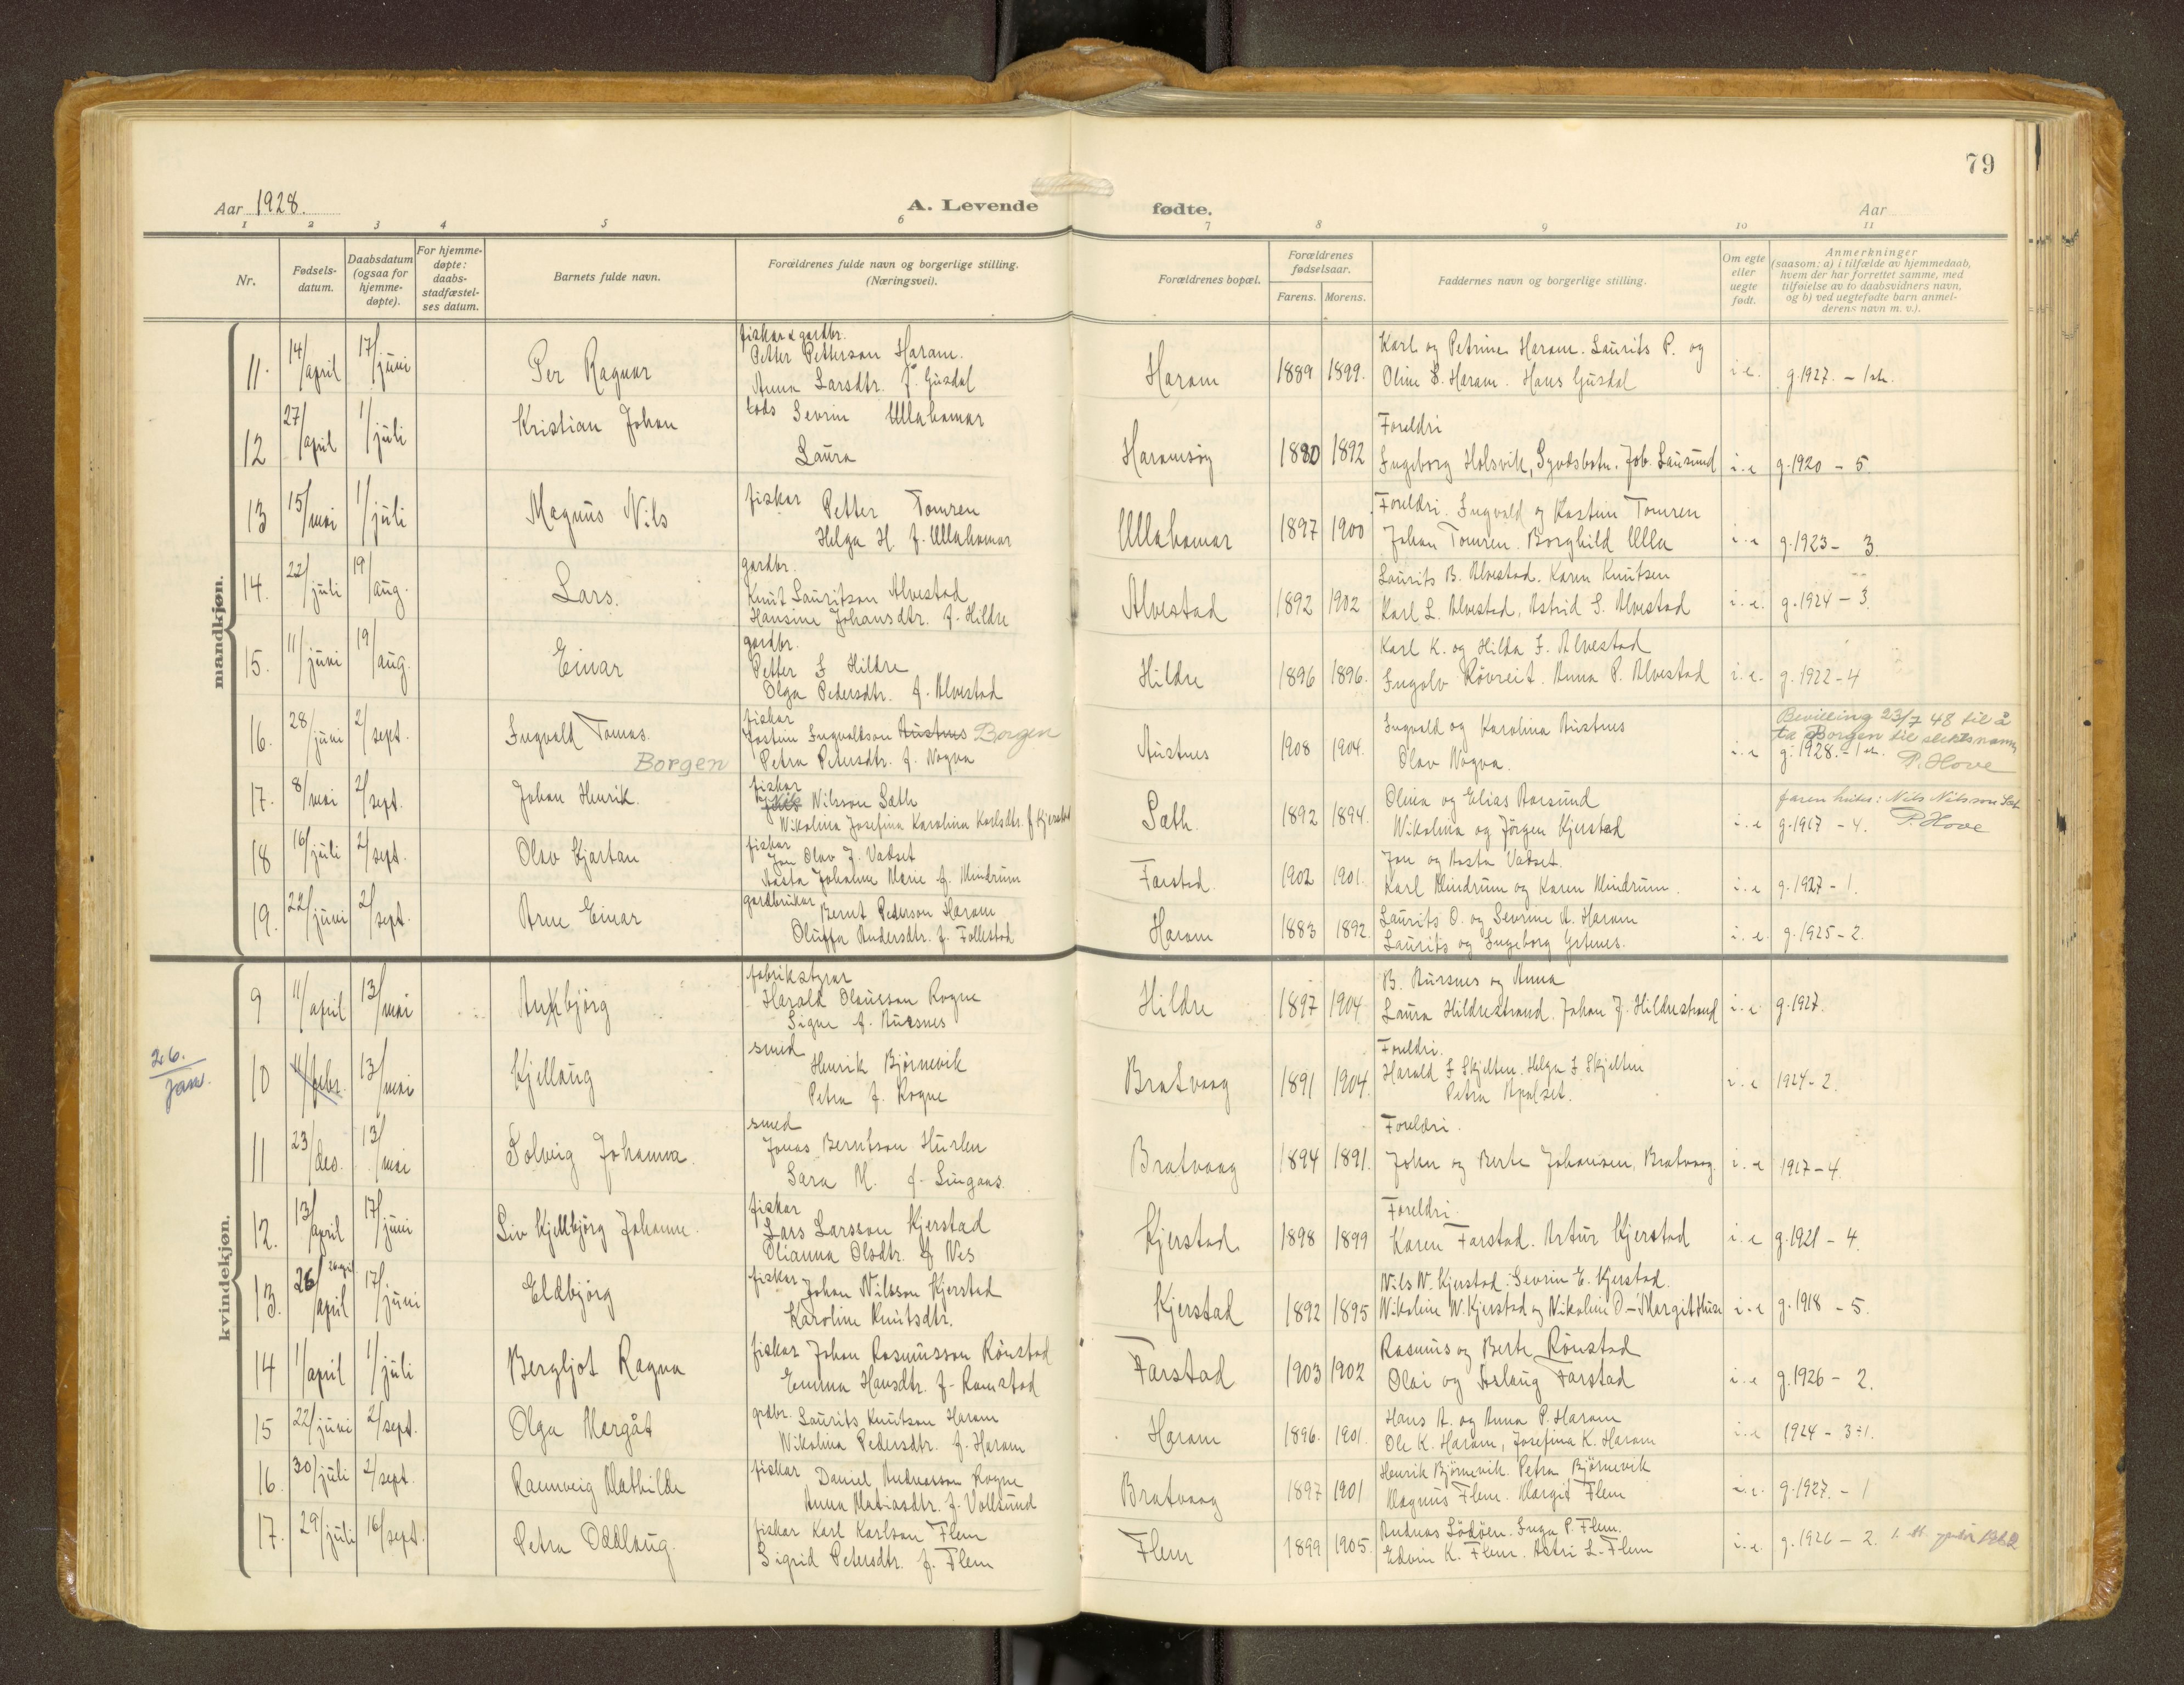 79
Aar 1928.
A. Levende fødte.
Aar
1 2 3 4 5 6 7 8 9 10 11
Nr.
Fødsels-
datum.
Daabsdatum
(ogsaa for
hjemme-
døpte).
For hjemme-
døpte:
daabs-
stadfæstel-
ses datum.
Barnets fulde navn.
Forældrenes fulde navn og borgerlige stilling.
(Næringsvei).
Forældrenes bopæl.
Forældrenes
fødselsaar.
Farens. Morens.
Faddernes navn og borgerlige stilling.
Om egte
eller
uegte
født.
Anmerkninger
(saasom: a) i tilfælde av hjemmedaab,
hvem der har forrettet samme, med
tilføielse av to daabsvidners navn,
og b) ved uegtefødte barn anmel-
derens navn m. v.).
mandkjøn.
11. 14/april 17/juni Per Ragnar
fiskar & gardbr.
Petter Petterson Haram.
Anna Larsdtr. f. Gusdal
Haram 1889 1899.
Karl og Petrine Haram. Laurits P. og
Oline S. Haram. Hans Gusdal
i e. g. 1927. – 1ste.
12 27/april 1/juli Kristian Johan
Sevrin Ullahamar
Laura
Haramsøy 1880 1892
Foreldri
Ingeborg Holsvik, Job. Lausund
i. e g. 1920 – 5.
13 15/mai 1/juli Magnus Nils
fiskar Petter Tomren
Helga H. f. Ullahamar
Ullahamar 1897 1900
Foreldri. Ingvald og Kastin Tomren
Johan Tomren. Borghild Ulla
i. e g. 1923 – 3.
14. 22/juli 19/aug. Lars.
gardbr.
Knut Lauritson Alvestad
Hansine Johansdtr. f. Hildre
Alvestad 1892 1902
Laurits B. Alvestad. Karen Knutsen
Karl L. Alvestad, Astrid S. Alvestad
i. e. g. 1924 – 3.
15. 11/juni 19/aug. Einar
gardbr.
Petter J Hildre
Olga Pedersdtr. f. Alvestad
Hildre 1896 1896.
Karl K. og Hilda J. Alvestad
Ingolv Rövreit. Anna P. Alvestad
i. e. g. 1922 – 4
16. 28/juni 2/sept. Ingvald Tomas. Borgen
fiskar
Jostein Ingvaldson Austnes Borgen
Petra Petersdtr. f. Nogva
Austnes 1908 1904.
Ingvald og Karolina Austnes
Olav Nogva.
i. e g. 1928. – 1ste.
Bevilling 23/7 48 til å
ta Borgen til slektsnamn
P. Hove
17. 8/mai 2/sept. Johan Henrik.
fiskar
Nilsson Sæth
Nikolina Josefina Karolina Karlsdtr. f Kjerstad
Sæth. 1892 1894.
Olina og Elias Aarsund
Nikolina og Jörgen Kjerstad
i. e g. 1917 – 4.
faren heiter: Nils Nilsson Sæt
P. Hove
18 16/juli 2/sept. Olav Kjartan
fiskar
Jon Olav J. Vadset
Aasta Johanne Marie f. Mindrum
Farstad. 1902 1901.
Jon og Aasta Vadset.
Karl Mindrum og Karen Mindrum.
i. e g. 1927 – 1.
19. 22/juni 2/sept. Arne Einar
gardbrukar
Bernt Pederson Haram
Oluffa Andersdtr. f. Follestad
Haram 1883 1892.
Laurits O. og Sevrine A. Haram
Laurits og Ingeborg Grtenes.
i. e. g. 1925 – 2.
kvindekjøn.
9 11/april 13/mai Ankbjörg
fabrikstyrar
Harald Olausson Rogne
Signe f. Aursnes
Hildre 1897 1904.
B. Aursnes og Anna
Laura Hildrestrand. Johan J. Hildrestrand
i. e g. 1927.
26./jan.
10 11/febr. 13/mai Kjellaug
smed
Henrik Björnevik
Petra f. Rogne
Bratvaag 1891 1904.
Foreldri.
Harald J Skjelten. Helga J Skjelten
Petra Apalset.
i. e 1924 – 2.
11 23/des. 13/mai Solveig Johanna.
smed
Jonas Berntson Hurlen
Sara M. f. Lingaas.
Bratvaag 1894 1891.
Foreldri.
John og Berte Johansen, Bratvaag.
i. e 1917 – 4.
12. 13/april 17/juni Liv Kjellbjörg Johanne.
fiskar
Lars Larsson Kjerstad
Olianna Olsdtr. f Nes
Kjerstad 1898 1899
Foreldri.
Karen Farstad. Artur Kjerstad
i. e g. 1921 – 4.
13. 26/april 17/juni Eldbjörg
fiskar Johan Nilsson Kjerstad
Karoline Knutsdtr.
Kjerstad 1892 1895
Nils N. Kjerstad. Sevrin E. Kjerstad.
Nikoline N. Kjerstad og Nikoline O – Margit Huse
i. e g. 1918 – 5.
14 1/april 1/juli Bergljot Ragna
fiskar Johan Rasmusson Rönstad
Emma Hansdtr. f. Ramstad
Farstad 1903 1902
Rasmus og Berte Rönstad
Olai og Aslaug Farstad
i. e g. 1926 – 2.
15 22/juni 2/sept. Olga Margåt
grdbr. Laurits Knutson Haram
Nikolina Pedersdtr. f. Haram
Haram 1896. 1901.
Hans A. og Anna P. Haram
Ole K. Haram, Josefina K. Haram
i. e 1924 – 3 ÷ 1.
16. 30/juli 2/sept. Raunveig Mathilde
fiskar Daniel Andreasson Rogne
Anna Matiasdtr. f. Vollsund
Bratvaag 1897 1901
Henrik Björnevik. Petra Björnevik
Magnus Flem. Margit Flem
i. e. g. 1927. – 1
17. 29/juli 16/sept. Petra Oddlaug.
fiskar Karl Karlson Flem
Sigrid Petersdtr. f. Flem
Flem 1899 1905.
Andreas Lödöen. Inga P. Flem.
Edvin K. Flem. Astri L. Flem
i. e. g. 1926 – 2.